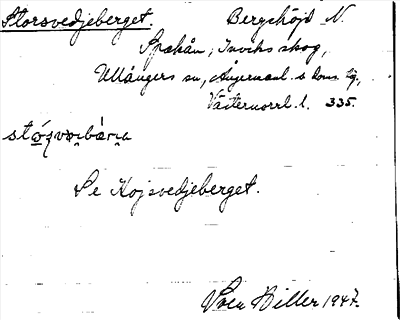 Storsvedjeberget. Bergshöjd N.
Spakån, Inviks skog,
Ullångers sn, Ångermanl. s doms. tg,
Västernorrl. l. 335.
Se Kojsvedjeberget.
Sven Hiller 1947.